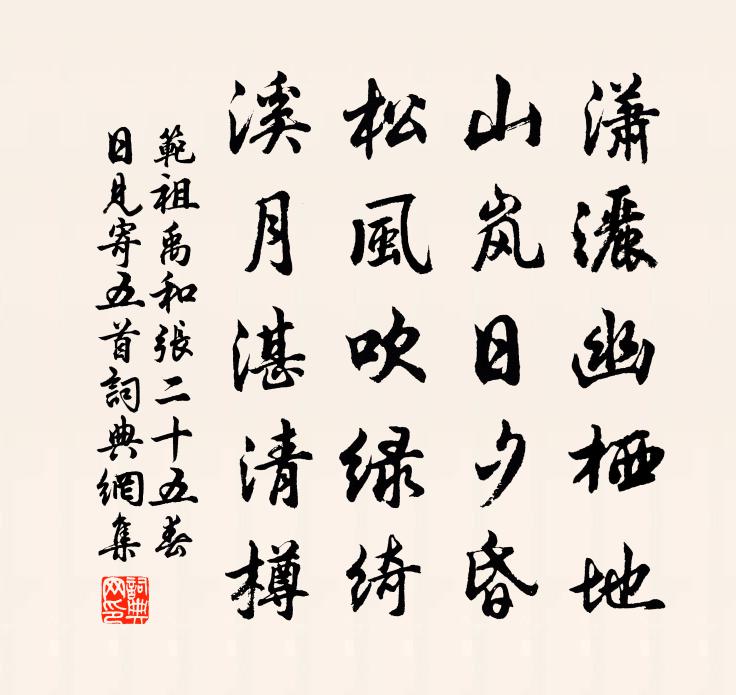 潇灑幽栖地
山岚日夕昏
松風吹緑綺
溪月湛清樽
範祖禹和張二十五春
日見寄五首詞典網集
詞典
网印